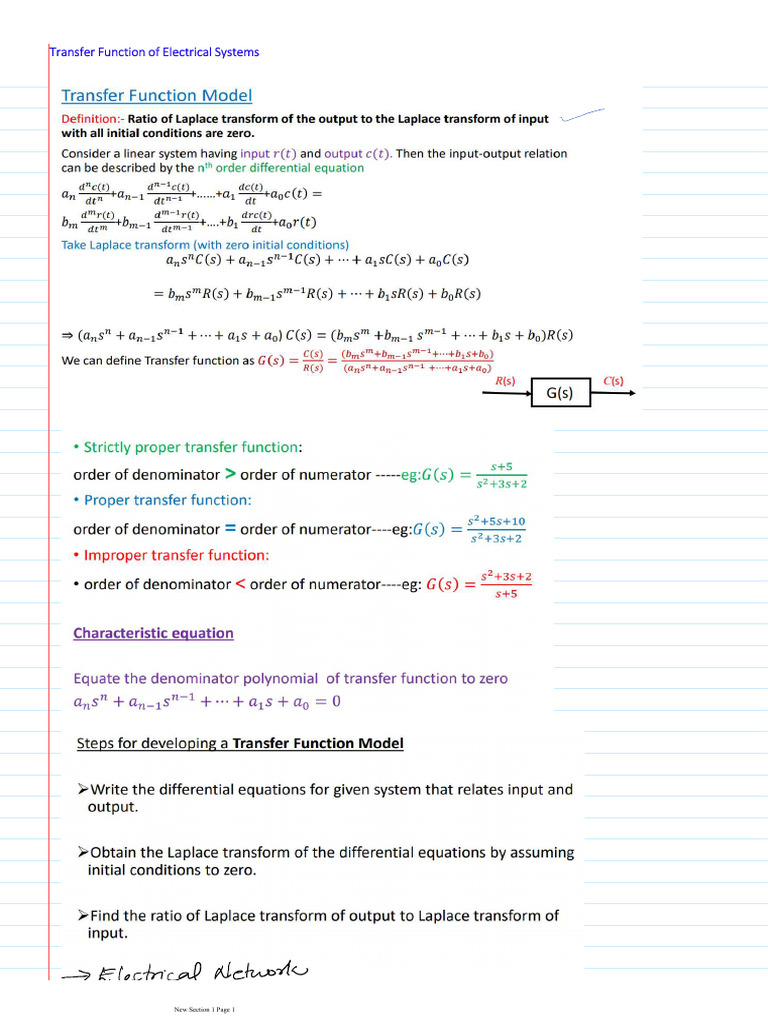 Transfer Function of Electrical Systems
Transfer Function Model
Definition:- Ratio of Laplace transform of the output to the Laplace transform of input
with all initial conditions are zero.
Consider a linear system having input r(t) and output c(t). Then the input-output relation
can be described by the nᵗʰ order differential equation
aₙ dⁿc(t)/dtⁿ+aₙ₋₁ dⁿ⁻¹c(t)/dtⁿ⁻¹+……+a₁ dc(t)/dt+a₀c(t) =
bₘ dᵐr(t)/dtᵐ+bₘ₋₁ dᵐ⁻¹r(t)/dtᵐ⁻¹+….+b₁ drc(t)/dt+a₀r(t)
Take Laplace transform (with zero initial conditions)
aₙsⁿC(s) + aₙ₋₁sⁿ⁻¹C(s) + ⋯ + a₁sC(s) + a₀C(s)
= bₘsᵐR(s) + bₘ₋₁sᵐ⁻¹R(s) + ⋯ + b₁sR(s) + b₀R(s)
⇒ (aₙsⁿ + aₙ₋₁sⁿ⁻¹ + ⋯ + a₁s + a₀) C(s) = (bₘsᵐ +bₘ₋₁ sᵐ⁻¹ + ⋯ + b₁s + b₀)R(s)
We can define Transfer function as G(s) = C(s)/R(s) = (bₘsᵐ+bₘ₋₁sᵐ⁻¹+⋯+b₁s+b₀)/(aₙsⁿ+aₙ₋₁sⁿ⁻¹ +⋯+a₁s+a₀)
R(s) G(s) C(s)
• Strictly proper transfer function:
order of denominator > order of numerator -----eg:G(s) = (s+5)/(s²+3s+2)
• Proper transfer function:
order of denominator = order of numerator----eg:G(s) = (s²+5s+10)/(s²+3s+2)
• Improper transfer function:
• order of denominator < order of numerator----eg: G(s) = (s²+3s+2)/(s+5)
Characteristic equation
Equate the denominator polynomial of transfer function to zero
aₙsⁿ + aₙ₋₁sⁿ⁻¹ + ⋯ + a₁s + a₀ = 0
Steps for developing a Transfer Function Model
➢Write the differential equations for given system that relates input and
output.
➢Obtain the Laplace transform of the differential equations by assuming
initial conditions to zero.
➢Find the ratio of Laplace transform of output to Laplace transform of
input.
→ Electrical Network
New Section 1 Page 1